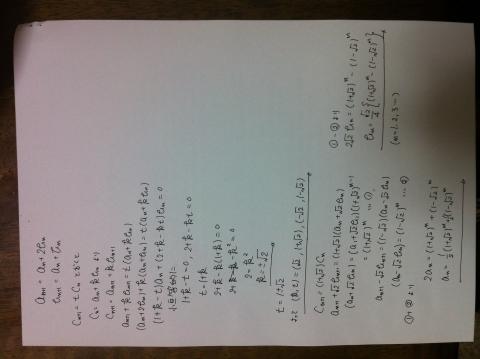 a_{n+1} = a_n + 2b_n
b_{n+1} = a_n + b_n
C_{n+1} = t C_n とおくと
C_n = a_n + k b_n より
C_{n+1} = a_{n+1} + k b_{n+1}
a_{n+1} + k b_{n+1} = t(a_n + k b_n)
(a_n + 2b_n) + k(a_n + b_n) = t(a_n + k b_n)
(1+k-t)a_n + (2+k-kt)b_n = 0
1+k-t=0, 2+k-kt=0
t=1+k
2+k-k(1+k)=0
2+k-k-k²=0
2=k²
k=±√2
t=1±√2
(k,t)=(√2, 1+√2), (-√2, 1-√2)
C_{n+1}=(1+√2)C_n
a_{n+1}+√2b_{n+1}=(1+√2)(a_n+√2b_n)
(a_n+√2b_n)=(a_1+√2b_1)(1+√2)^{n-1}
=(1+√2)^n ... ①
a_{n+1}-√2b_{n+1}=(1-√2)(a_n-√2b_n)
(a_n-√2b_n)=(1-√2)^n ... ②
①+②より
2a_n=(1+√2)^n+(1-√2)^n
a_n=\frac{1}{2}{(1+√2)^n+(1-√2)^n}
①-②より
2√2b_n=(1+√2)^n-(1-√2)^n
b_n=\frac{√2}{4}{(1+√2)^n-(1-√2)^n}
(n=1,2,3…)